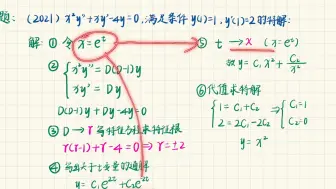 题: (2021) x²y″+xy′-4y=0, 满足条件 y(1)=1, y′(1)=2 的特解:
解: ① 令 x=e^t
② { x²y″=D(D-1)y
xy′=Dy
D(D-1)y+Dy-4y=0
③ D→r 写特征方程求特征根
r(r-1)+r-4=0 ⇒ r=±2
④ 写出关于t变量的通解
y=C₁e^{2t}+C₂e^{2t}
⑤ t→x (x=e^t)
故 y=C₁x²+C₂/x²
⑥ 代值求特解
{ 1=C₁+C₂
2=2C₁-2C₂ ⇒ { C₁=1
C₂=0
y=x²